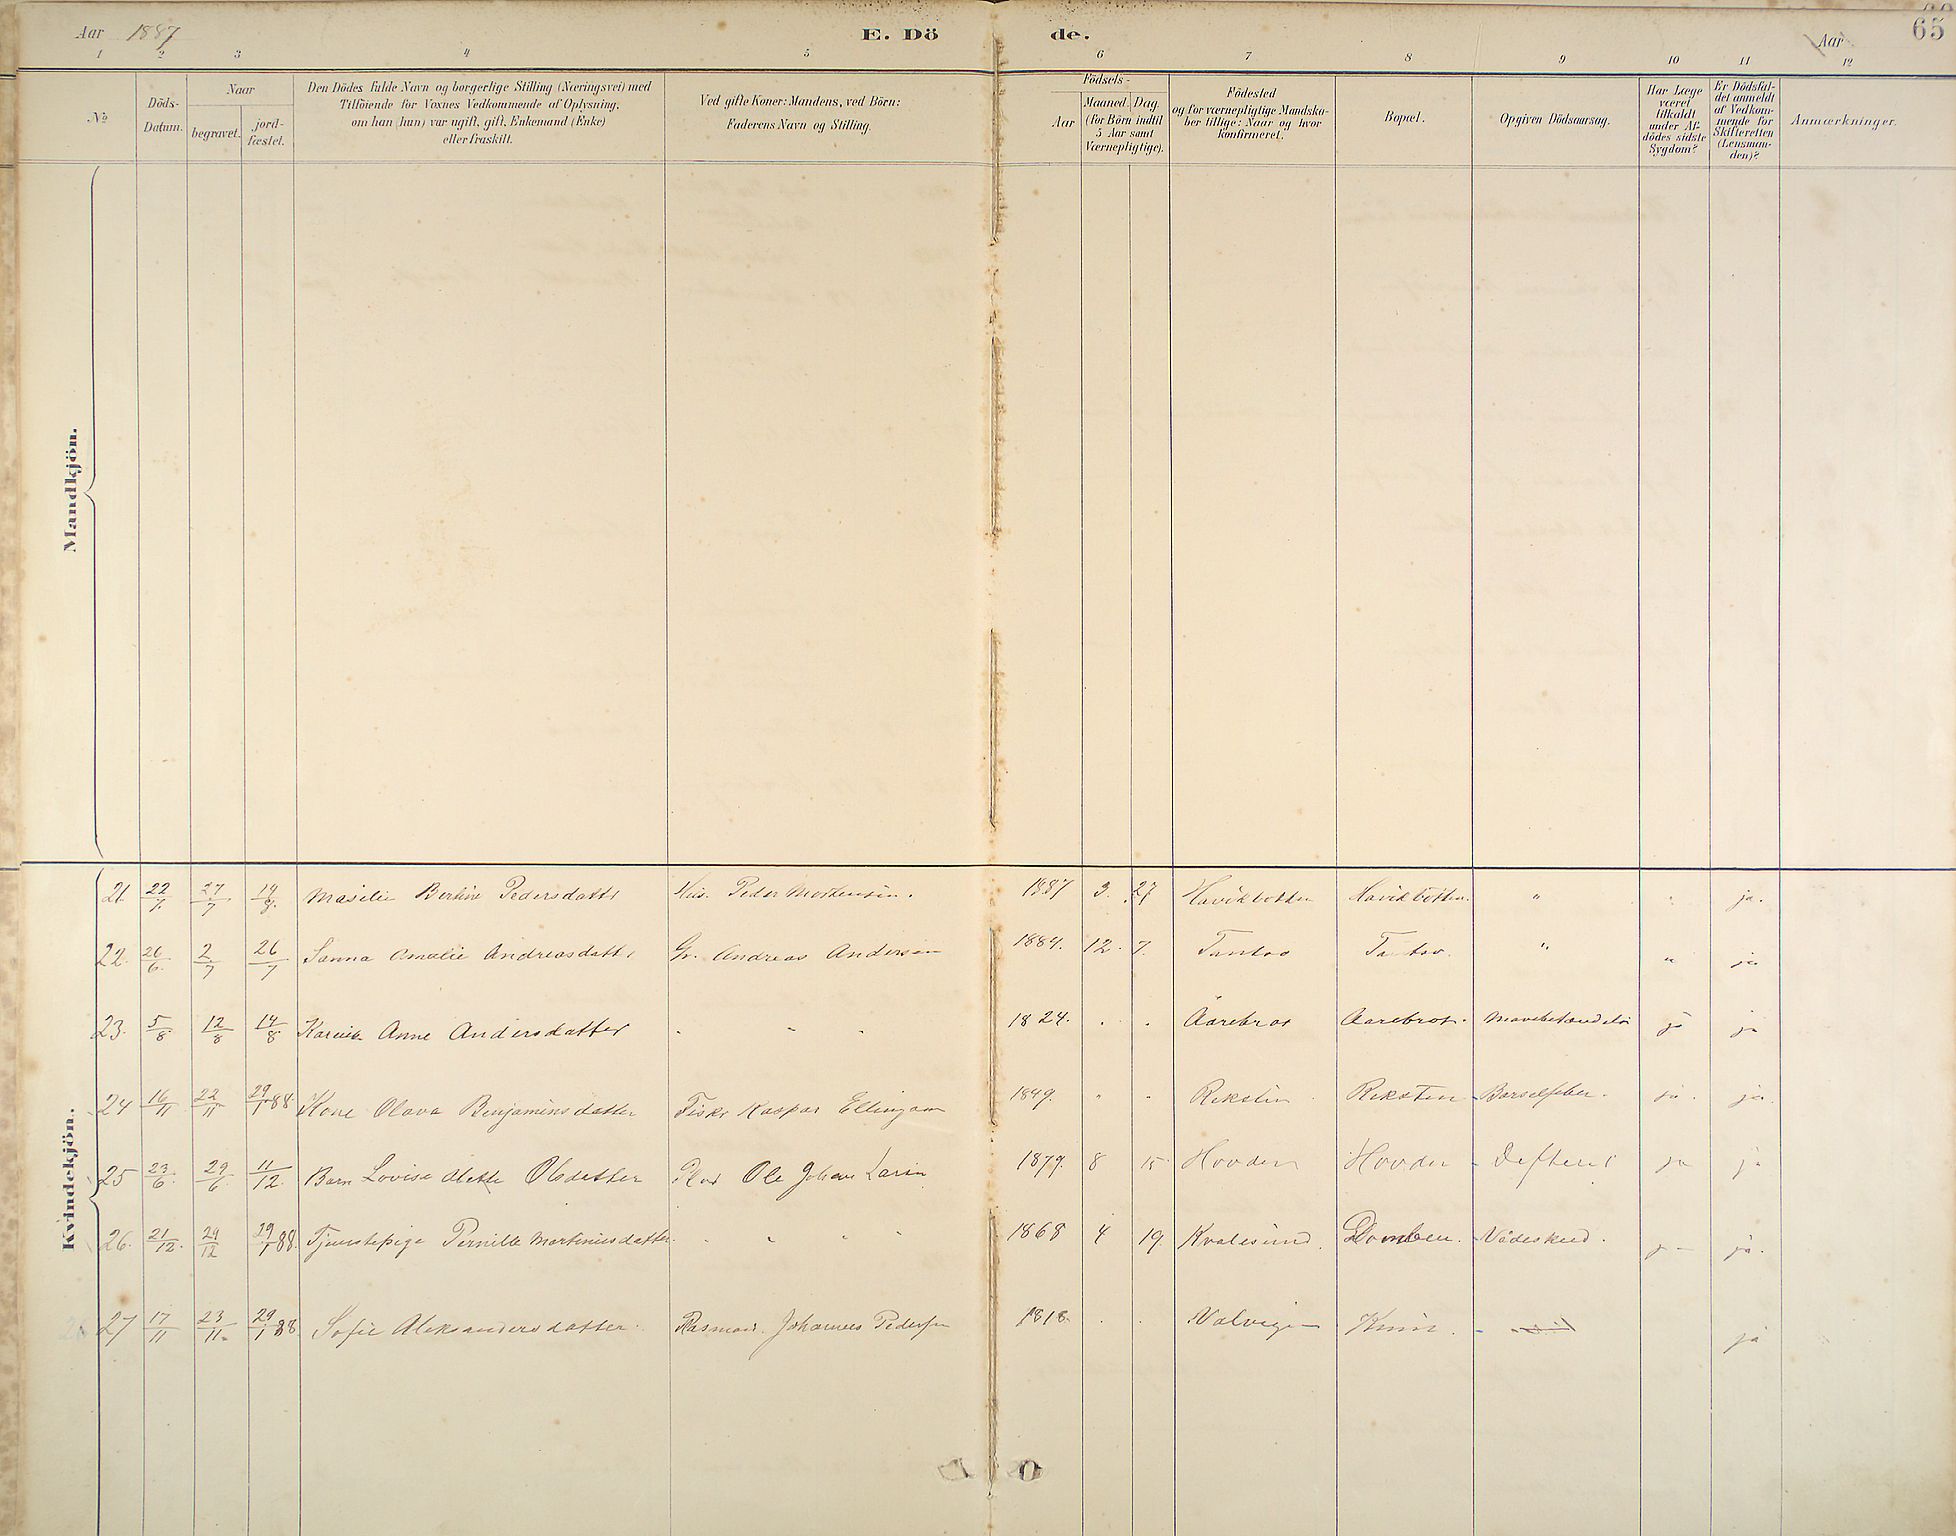 Aar 1887 E. Dö de. Aar 65
1 2 3 4 5 6 7 8 9 10 11 12
№
Döds-Datum.
Naar
begravet. jord-fæstet.
Den Dödes fulde Navn og borgerlige Stilling (Næringsvei) med
Tilföiende for Voxnes Vedkommende af Oplysning,
om han (hun) var ugift, gift, Enkemand (Enke)
eller fraskilt.
Ved gifte Koner: Mandens, ved Börn:
Faderens Navn og Stilling.
Födsels-
Aar
Maaned. Dag.
(for Börn indtil
5 Aar samt
Værnepligtige).
Födested
og for værnepligtige Mandska-
ber tillige: Naar og hvor
konfirmeret.
Bopæl.
Opgiven Dödsaarsag.
Har Læge
været
tilkaldt
under Af-
dödes sidste
Sygdom?
Er Dödsfal-
det anmeldt
af Vedkom-
mende for
Skifteretten
(Lensman-
den)?
Anmærkninger.
Mandkjön.
Kvindekjön.
21. 22/7. 27/7 14/8. Bertine Pedersdatter Hus. Peder Mortensen. 1887 3. 27 Havikbotten Havikbotten. " " ja.
22. 26/6. 2/7 26/7 Sanna Amalie Andreasdatter Gr. Andreas Andersen 1884. 12. 7. " " ja
23. 5/8 12/8 14/8 Anne Andersdatter " " " 1824. " " Aarebrot Aarebrot. ja ja
24 16/11 22/11 29/1 88 Kone Olava Benjaminsdatter Fisker Kaspar Ellingsen 1849. " " Reksten Reksten Barselfeber. ja. ja.
25 23/6. 29/6. 11/12. Barn Lovise Mette Olsdatter Ole Johan 1879. 8 15 Hovden Hovden Difterit ja ja
26. 21/12. 29/12 29/1 88. Tjenestepige Pernille Martinusdatter. " " " " 1868 4 19 Kvalesund. Vådeskud. ja ja.
27 17/11 23/11. 29/1 88 Sofie Aleksandersdatter. Johannes Pedersen 1818. " " Valvigen ja